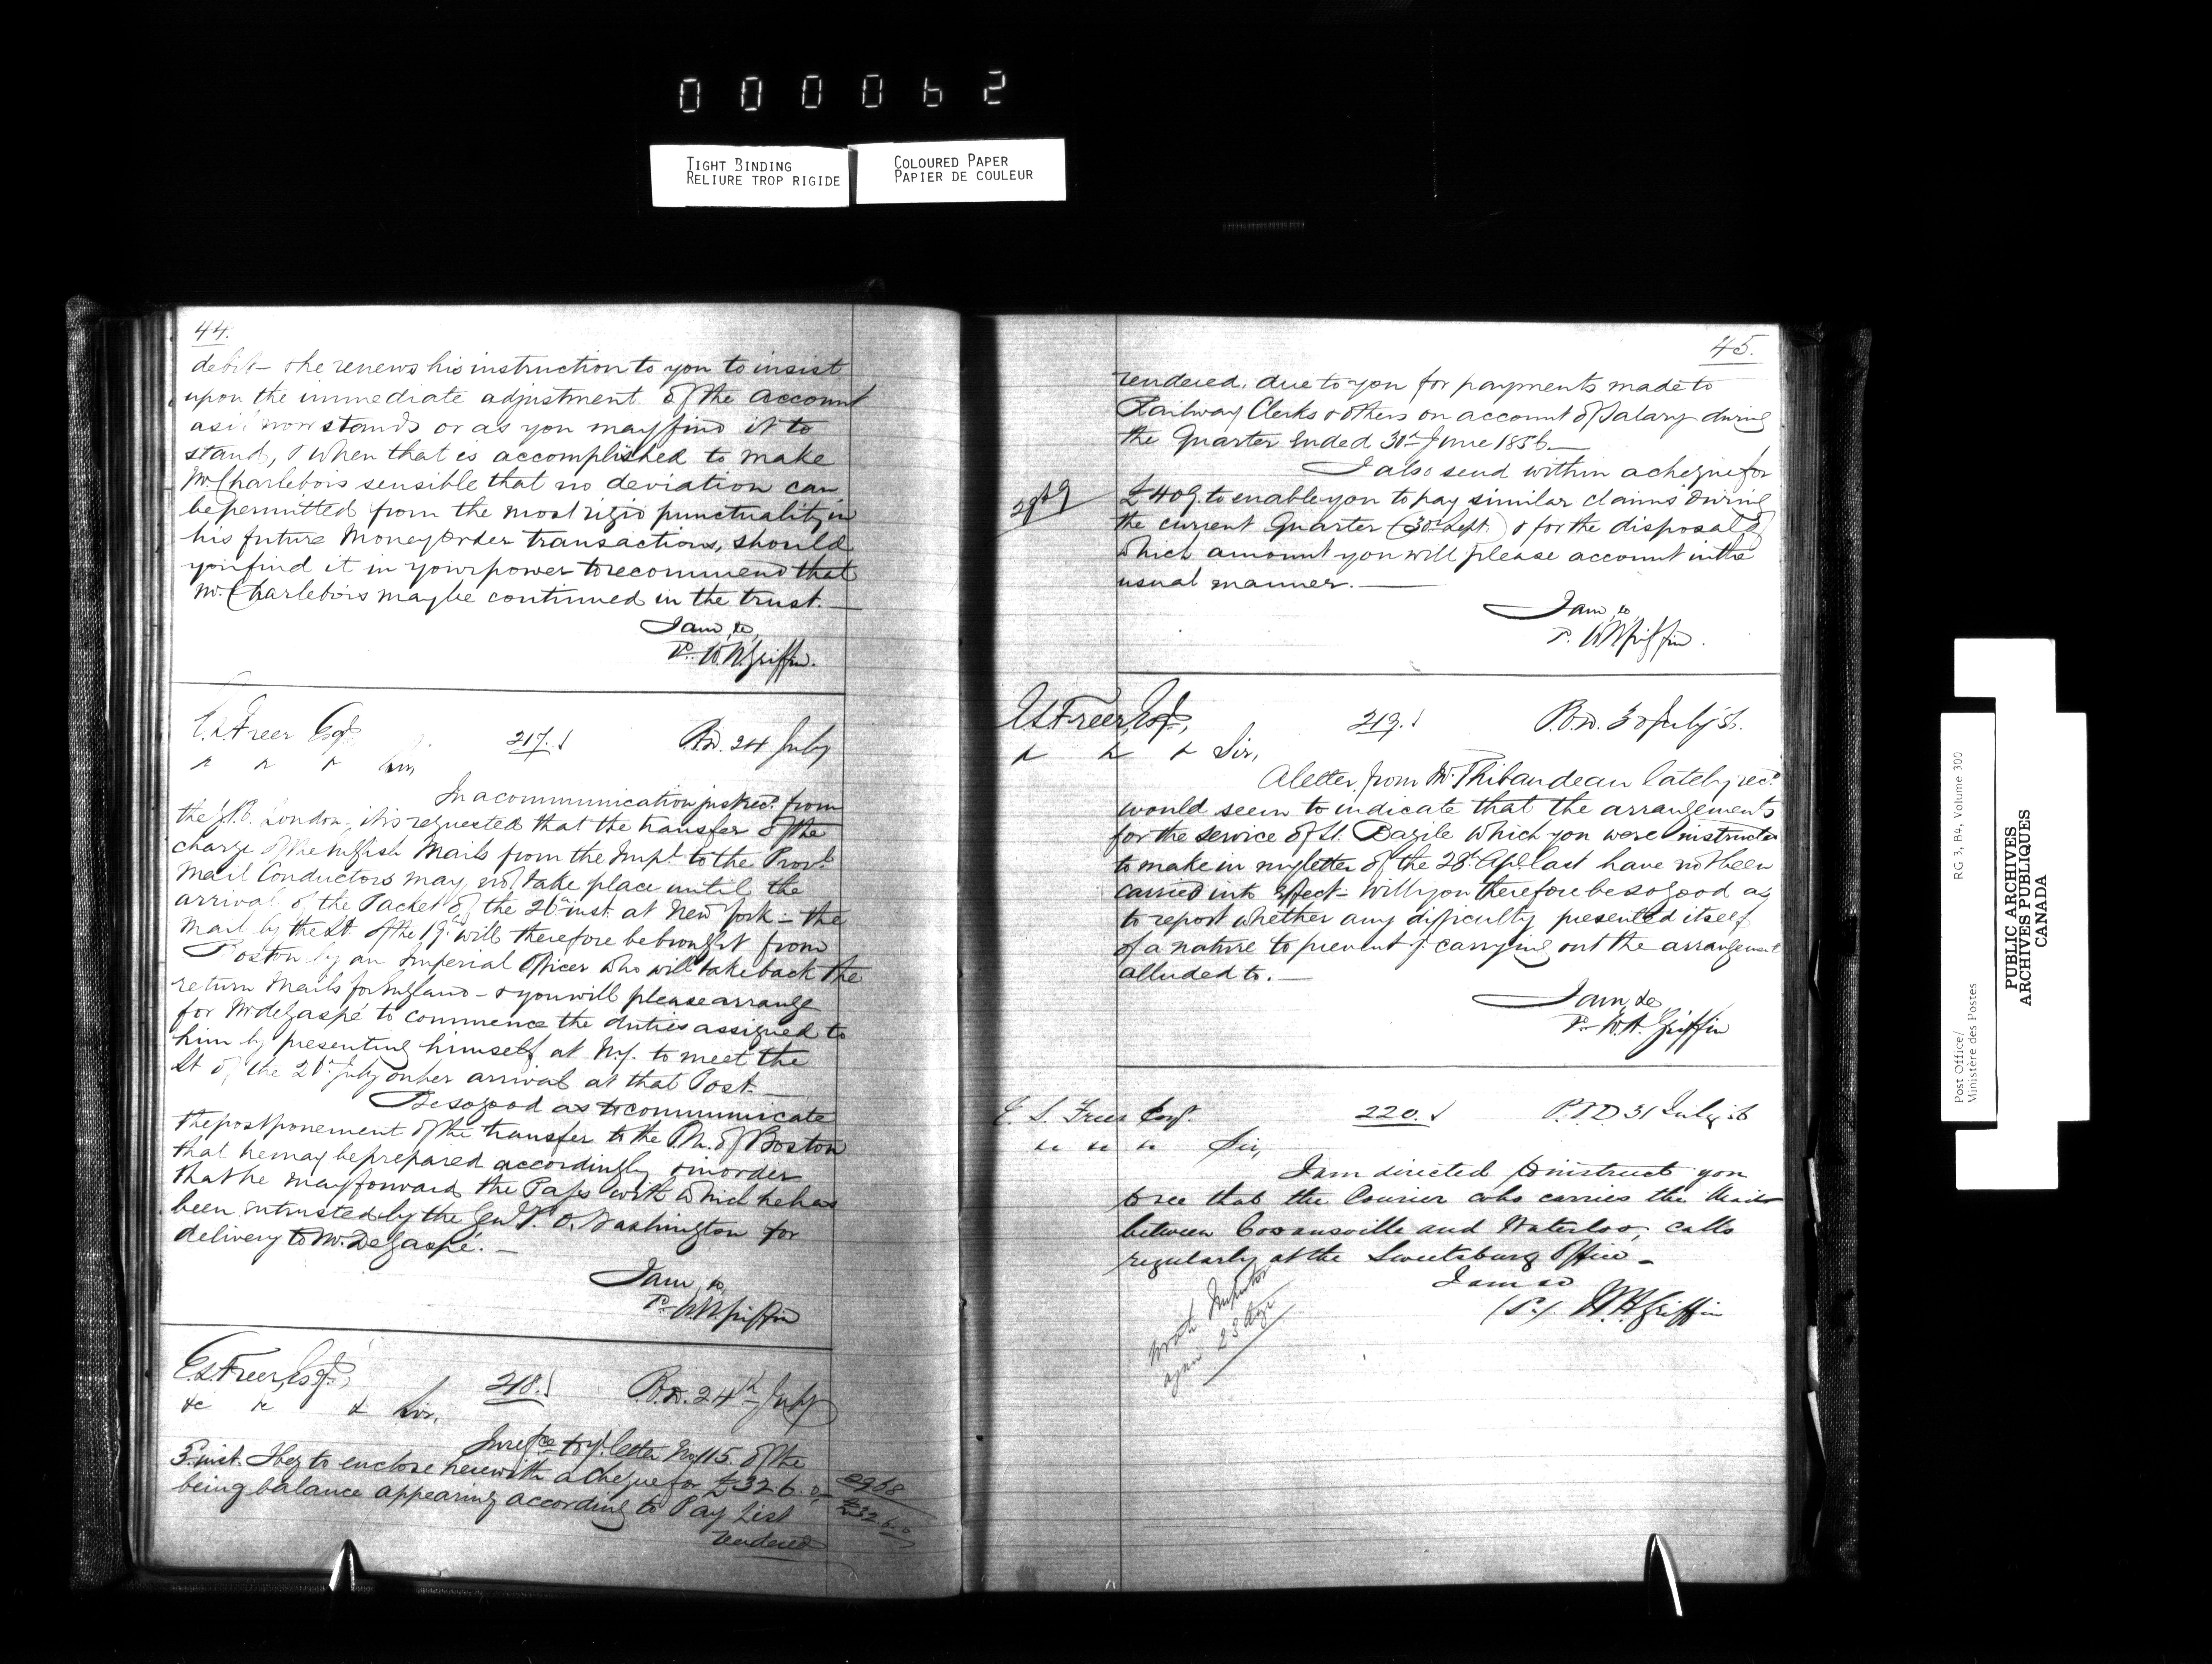 000062
TIGHT BINDING
RELIURE TROP RIGIDE
COLOURED PAPER
PAPIER DE COULEUR
44.
debit – & he renews his instruction to you to insist
upon the immediate adjustment of the account
as it now stands or as you may find it to
stand, & when that is accomplished to make
Mr. Charlebois sensible that no deviation can
be permitted from the most rigid punctuality in
his future Money Order transactions, should
you find it in your power to recommend that
Mr. Charlebois may be continued in the trust. —
I am, &c,
W. H. Griffin.
E. S. Freer Esqr. 217. P.O.D. 24 July
&c &c &c Sir,
In a communication just recd. from
the G.P.O. London it is requested that the transfer of the
charge of the English Mails from the Impl. to the Provl.
Mail Conductors may not take place until the
arrival of the Packet of the 26th inst. at New York – the
Mail by the St. of the 19th will therefore be brought from
Boston by an Imperial Officer who will take back the
return Mails for England – & you will please arrange
for Mr deGaspé to commence the duties assigned to
him by presenting himself at N.Y. to meet the
St of the July on her arrival at that Post. —
Be so good as to communicate
the postponement of the transfer to the P.M. of Boston
that he may be prepared accordingly & in order
that he may forward the Pass with which he has
been entrusted by the Genl. P. O. Washington for
delivery to Mr. DeGaspé. —
I am, &c,
W. H. Griffin
E. S. Freer, Esqr., 218. P.O.D. 24th July
&c &c &c Sir,
In refce to yr. letter No 115. of the
5 inst. I beg to enclose herewith a cheque for £32 6. 0,
being balance appearing according to Pay List
rendered
£32.6.0
45.
rendered, due to you for payments made to
Railway Clerks & others on account of Salary during
the Quarter ended 30th June 1856 —
I also send within a cheque for
£409. to enable you to pay similar claims during
the current Quarter (30th Sept.) & for the disposal of
which amount you will please account in the
usual manner. —
I am, &c,
W H Griffin.
E. S. Freer, Esqr., 219. P.O.D. 30 July 56.
&c &c &c Sir,
A letter from Mr. Thibaudeau lately recd.
would seem to indicate that the arrangements
for the service of St. Bazile which you were instructed
to make in my letter of the 28th Apl. last have not been
carried into effect – will you therefore be so good as
to report whether any difficulty presented itself
of a nature to prevent yr. carrying out the arrangement
alluded to. —
I am, &c
W. H. Griffin
E. S. Freer Esqr. 220. P.O.D. 31 July 56
" " " Sir,
I am directed to instruct you
to see that the Courier who carries the Mails
between Cowansville and Waterloo, calls
regularly at the Sweetsburg Office –
I am &c
W. H. Griffin
Wrote Inspector
again 23 Augt
RG 3, B4, Volume 300
Post Office/
Ministère des Postes
PUBLIC ARCHIVES
ARCHIVES PUBLIQUES
CANADA